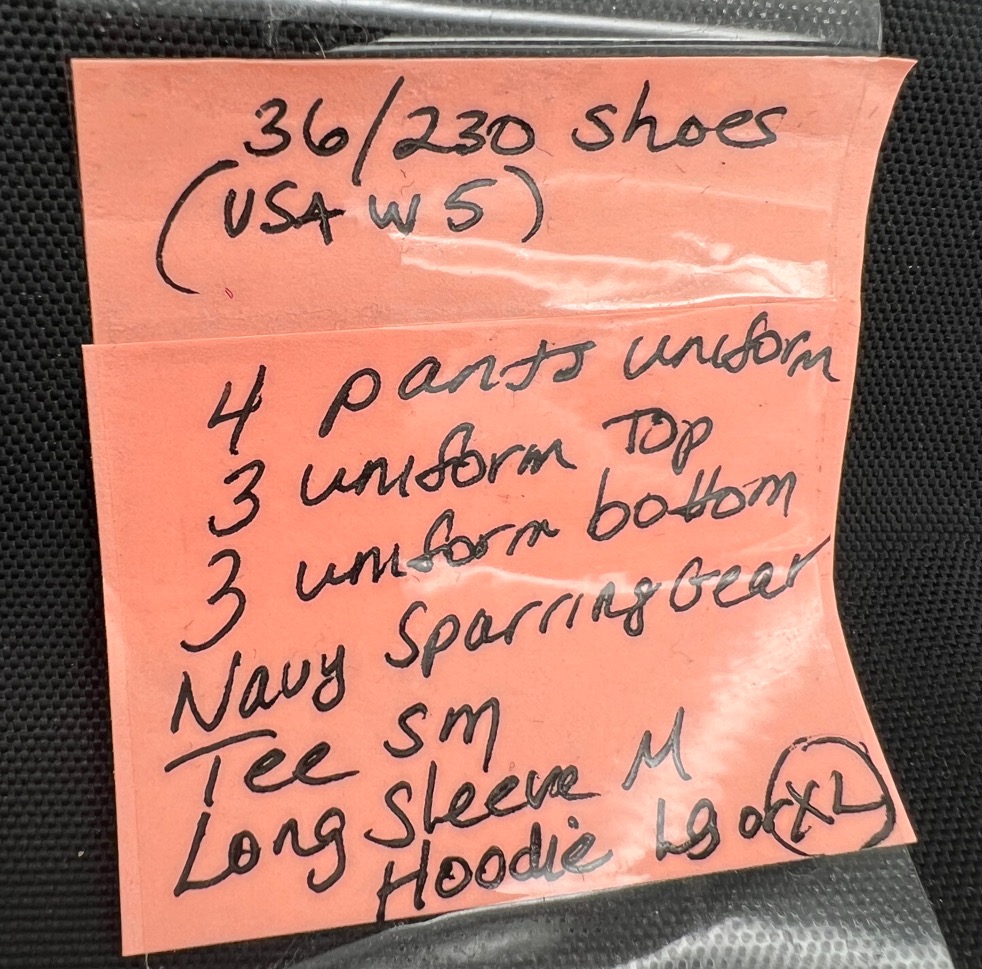 36/230 shoes
(USA W 5)
4 pants uniform
3 uniform Top
3 uniform bottom
Navy Sparring Gear
Tee sm
Long Sleeve M
Hoodie Lg or XL